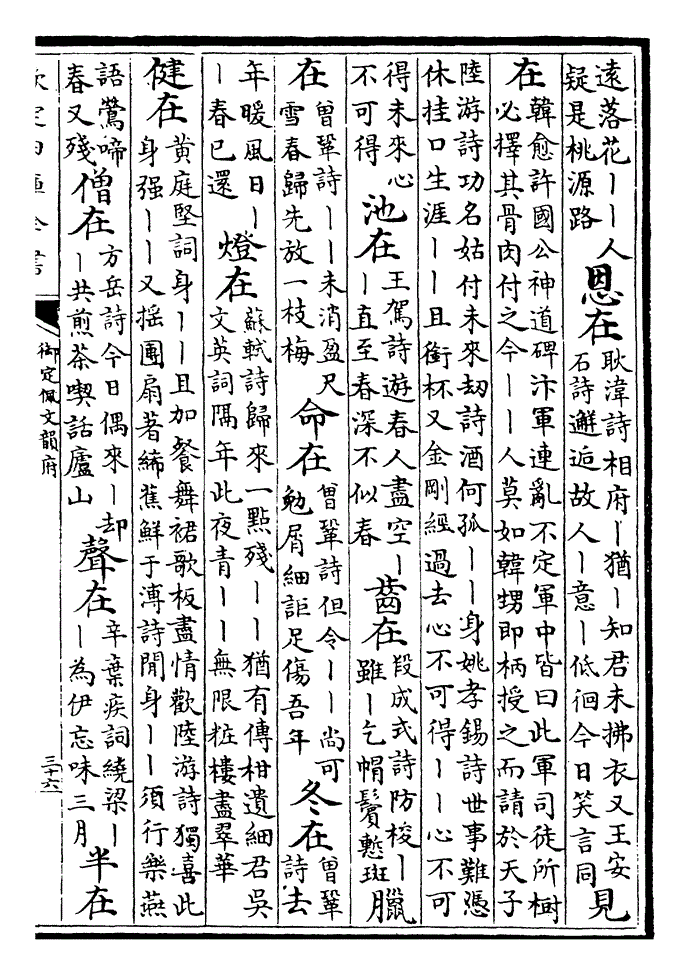 遠落花丨丨人
疑是桃源路
恩在
耿湋詩相府丨猶丨知君未拂衣又王安
石詩邂逅故人丨意丨低徊今日笑言同
見
在
韓愈許國公神道碑汴軍連亂不定軍中皆曰此軍司徒所樹
必擇其骨肉付之今丨丨丨人莫如韓甥即柄授之而請於天子
陸游詩功名姑付未來劫詩酒何孤丨丨身姚孝錫詩世事難憑
休挂口生涯丨丨且銜杯又金剛經過去心不可得丨丨心不可
得未來心
不可得
池在
王駕詩遊春人盡空丨
丨直至春深不似春
齒在
段成式詩防梭丨
雖丨乞帽鬢慙斑
臘
在
曾鞏詩丨丨未消盈尺
雪春歸先放一枝梅
命在
曾鞏詩但令丨丨尚可
勉屑細詎足傷吾年
冬在
曾鞏
詩去
年暖風日丨
丨春已還
燈在
蘇軾詩歸來一點殘丨丨猶有傳柑遺細君吳
文英詞隔年此夜青丨丨無限粧樓盡翠華
健在
黃庭堅詞身丨丨且加餐舞裙歌板盡情歡陸游詩獨喜此
身强丨丨又揺團扇著絺蕉鮮于溥詩閒身丨丨須行樂燕
語鶯啼
春又殘
僧在
方岳詩今日偶來丨却
丨共煎茶喫話廬山
聲在
辛棄疾詞繞梁丨
丨為伊忘味三月
半在
欽定四庫全書
御定佩文韻府
三十六